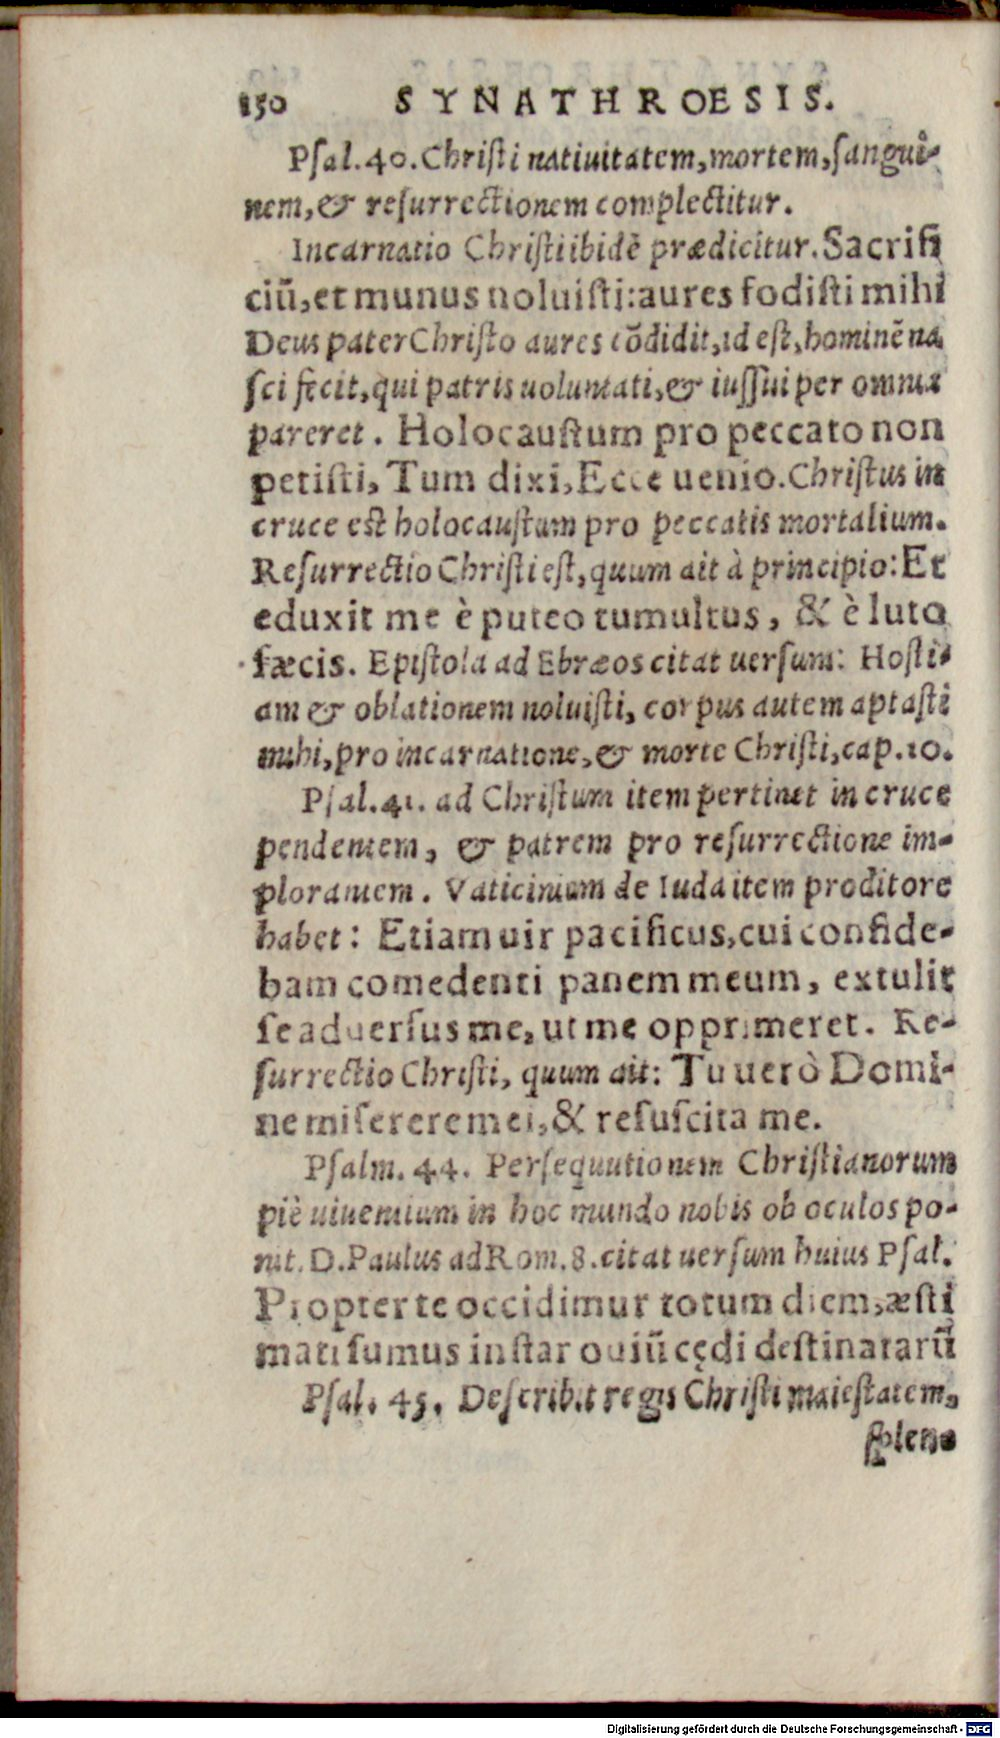 150 SYNATHROESIS.
Psal.40.Christi natiuitatem,mortem,sangui-
nem,& resurrectionem complectitur.
Incarnatio Christi ibidẽ prædicitur.Sacrifi
ciũ,et munus noluisti:aures fodisti mihi
Deus pater Christo aures cõdidit,id est,hominẽ na
sci fecit,qui patris uoluntati,& iussui per omnia
pareret. Holocaustum pro peccato non
petisti, Tum dixi, Ecce uenio. Christus in
cruce est holocaustum pro peccatis mortalium.
Resurrectio Christi est,quum ait à principio: Et
eduxit me è puteo tumultus, & è luto
fæcis. Epistola ad Ebræos citat uersum: Hosti-
am & oblationem noluisti, corpus autem aptasti
mihi,pro incarnatione,& morte Christi,cap.10.
Psal.41. ad Christum item pertinet in cruce
pendentem, & patrem pro resurrectione im-
plorantem. Vaticinium de Iuda item proditore
habet: Etiam uir pacificus,cui confide-
bam comedenti panem meum, extulit
se aduersus me, ut me opprimeret. Re-
surrectio Christi, quum ait: Tu uerò Domi-
ne miserere mei,& resuscita me.
Psalm. 44. Persequutionem Christianorum
piè uiuentium in hoc mundo nobis ob oculos po-
nit. D.Paulus ad Rom.8.citat uersum huius Psal.
Propter te occidimur totum diem,æsti
mati sumus instar ouiũ cędi destinatarũ
Psal. 45. Describit regis Christi maiestatem,
splen-
Digitalisierung gefördert durch die Deutsche Forschungsgemeinschaft - DFG